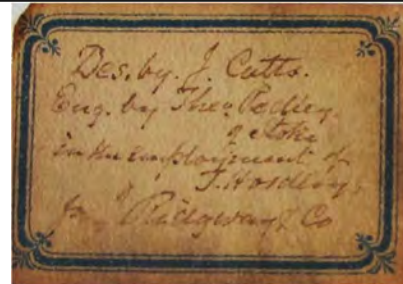 Des. by. J. Cutts.
Eng. by Theo. Pedley.
of Stoke
in the employment of
J. Hordley,
for Ridgway & Co